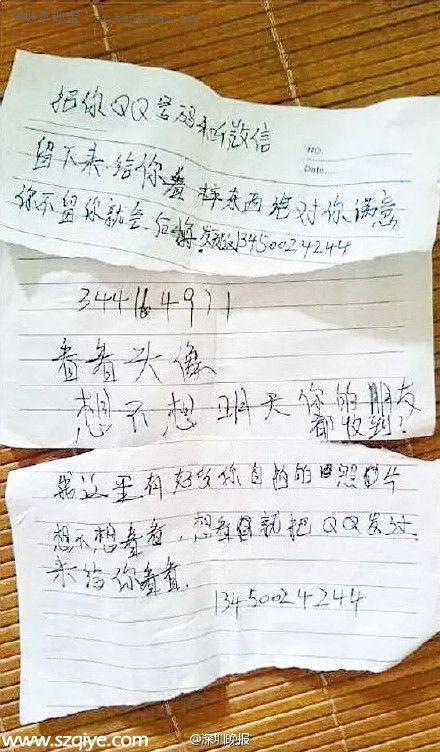 把你QQ号码和微信
NO.
Date.
留下来给你看样东西绝对你满意
你不留你就会 发 13450024244
344164971
看看头像
想不想明天你的朋友
都收到?
我这里有好多你自拍的照片
想不想看看,想看就把QQ发过
来给你看看.
13450024244
www.szqiye.com
@深圳晚报